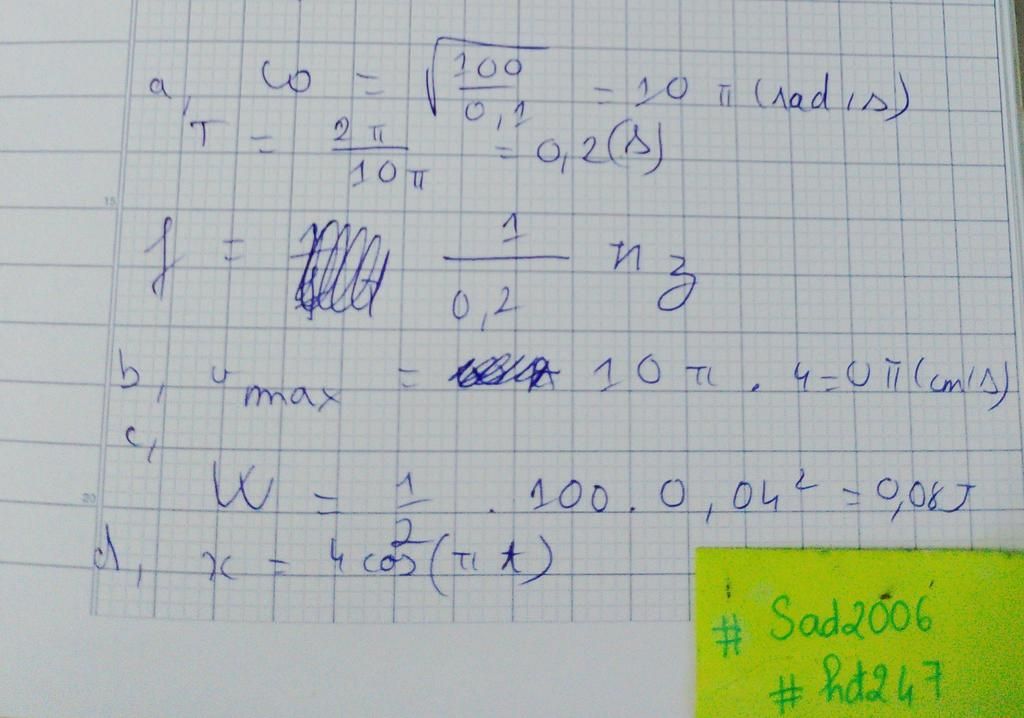 a, ω = √(100/0,1) = 10 π (rad/s)
T = 2π/10π = 0,2(s)
f = 1/0,2 Hz
b, v max = 10 π . 4 = 0 π (cm/s)
c,
W = 1/2 . 100 . 0,04² = 0,08J
d, x = 4 cos(π t)
# Sad2006
# hd247
15
20